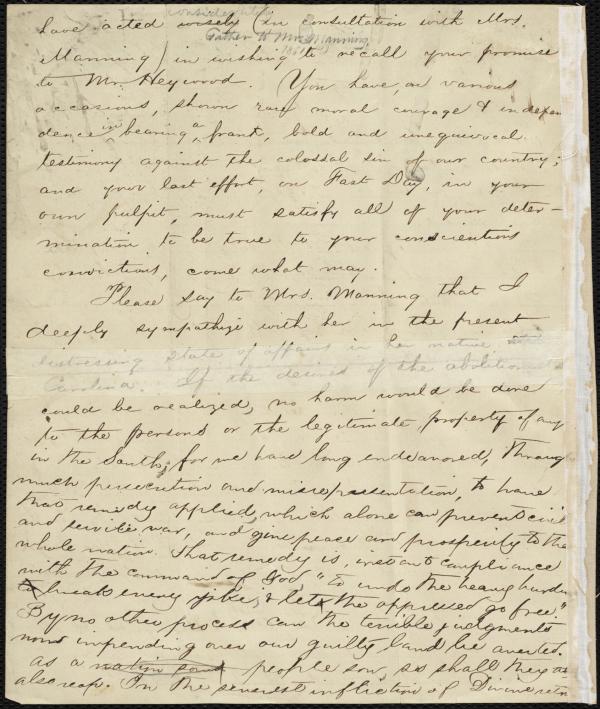 considerately
have acted wisely (in consultation with Mrs.
Father to Mrs. Manning
1861
Manning) in wishing to recall your promise
to Mr. Heywood. You have, on various
occasions, shown rare moral courage & indepen
dence in bearing a frank, bold and unequivocal
testimony against the colossal sin of our country;
and your last effort, on Fast Day, in your
own pulpit, must satisfy all of your deter-
mination to be true to your conscientious
convictions, come what may.
Please say to Mrs. Manning that I
deeply sympathize with her in the present
distressing state of affairs in her native
Carolina. If the desires of the abolitionists
could be realized, no harm would be done
to the persons or the legitimate property of any
in the South; for we have long endeavored, through
much persecution and misrepresentation, to have
that remedy applied, which alone can prevent civil
and servile war, and give peace and prosperity to the
whole nation. That remedy is, instant compliance
with the command of God, "to undo the heavy burdens
break every yoke, & let the oppressed go free."
By no other process can the terrible judgments
now impending over our guilty land be averted.
As a nation people sow, so shall they
also reap. In the severest infliction of Divine retri